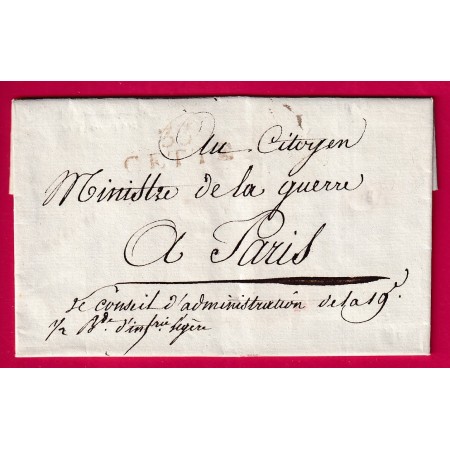 CETTE
Au Citoyen
Ministre de la guerre
A Paris
Le Conseil d'administration de la 19e.
1/2 Bde d'infrie légère